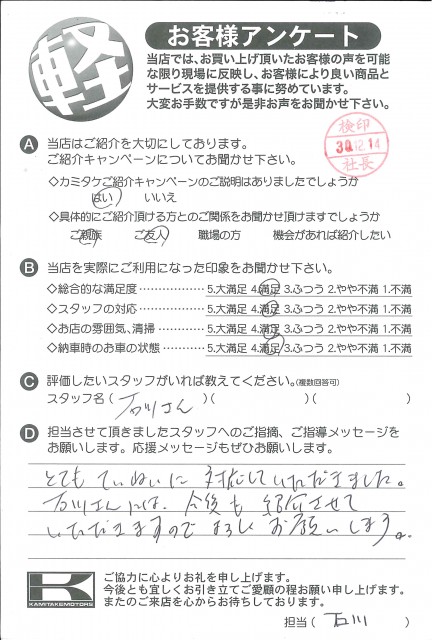 軽
お客様アンケート
当店では、お買い上げ頂いたお客様の声を可能
な限り現場に反映し、お客様により良い商品と
サービスを提供する事に努めています。
大変お手数ですが是非お声をお聞かせ下さい。
検印
30.12.14
社長
A 当店はご紹介を大切にしております。
ご紹介キャンペーンについてお聞かせ下さい。
◇カミタケご紹介キャンペーンのご説明はありましたでしょうか
はい いいえ
◇具体的にご紹介頂ける方とのご関係をお聞かせ頂けますでしょうか
ご親族 ご友人 職場の方 機会があれば紹介したい
B 当店を実際にご利用になった印象をお聞かせ下さい。
◇総合的な満足度……………5.大満足 4.満足 3.ふつう 2.やや不満 1.不満
◇スタッフの対応……………5.大満足 4.満足 3.ふつう 2.やや不満 1.不満
◇お店の雰囲気、清掃………5.大満足 4.満足 3.ふつう 2.やや不満 1.不満
◇納車時のお車の状態………5.大満足 4.満足 3.ふつう 2.やや不満 1.不満
C 評価したいスタッフがいれば教えてください。(複数回答可)
スタッフ名( 石川さん )( )( )
D 担当させて頂きましたスタッフへのご指摘、ご指導メッセージを
お願いします。応援メッセージもぜひお願いします。
とてもていねいに対応していただきました。
石川さんには、今後も紹介させて
いただきますのでよろしくお願いします。
K
KAMITAKEMOTORS
ご協力に心よりお礼を申し上げます。
今後とも宜しくお引き立てご愛顧の程お願い申し上げます。
またのご来店を心からお待ちしております。
担当( 石川 )